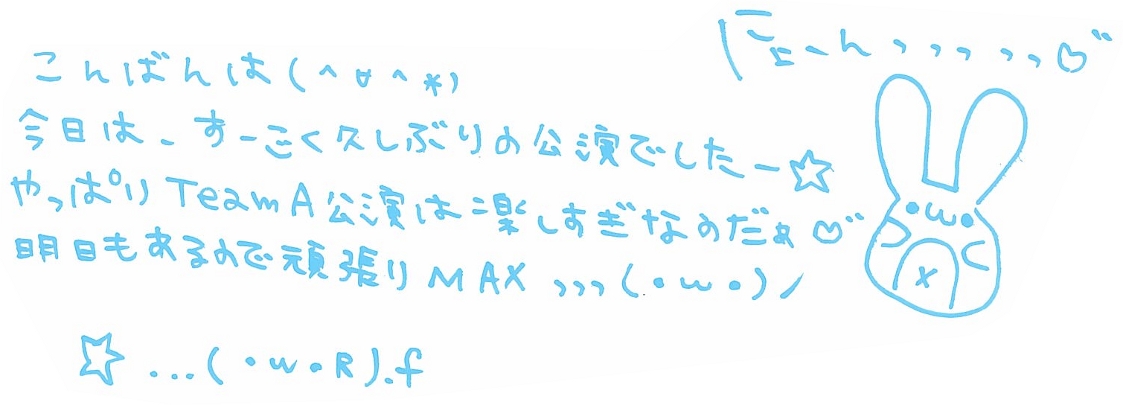 にょーん、、、、、♡"
こんばんは(^∀^*)
今日は、すーごく久しぶりの公演でしたー☆
やっぱりTeamA公演は楽しすぎなのだぁ♡"
明日もあるので頑張りMAX,,,(・ω・)ノ
☆...(・ω・R).f